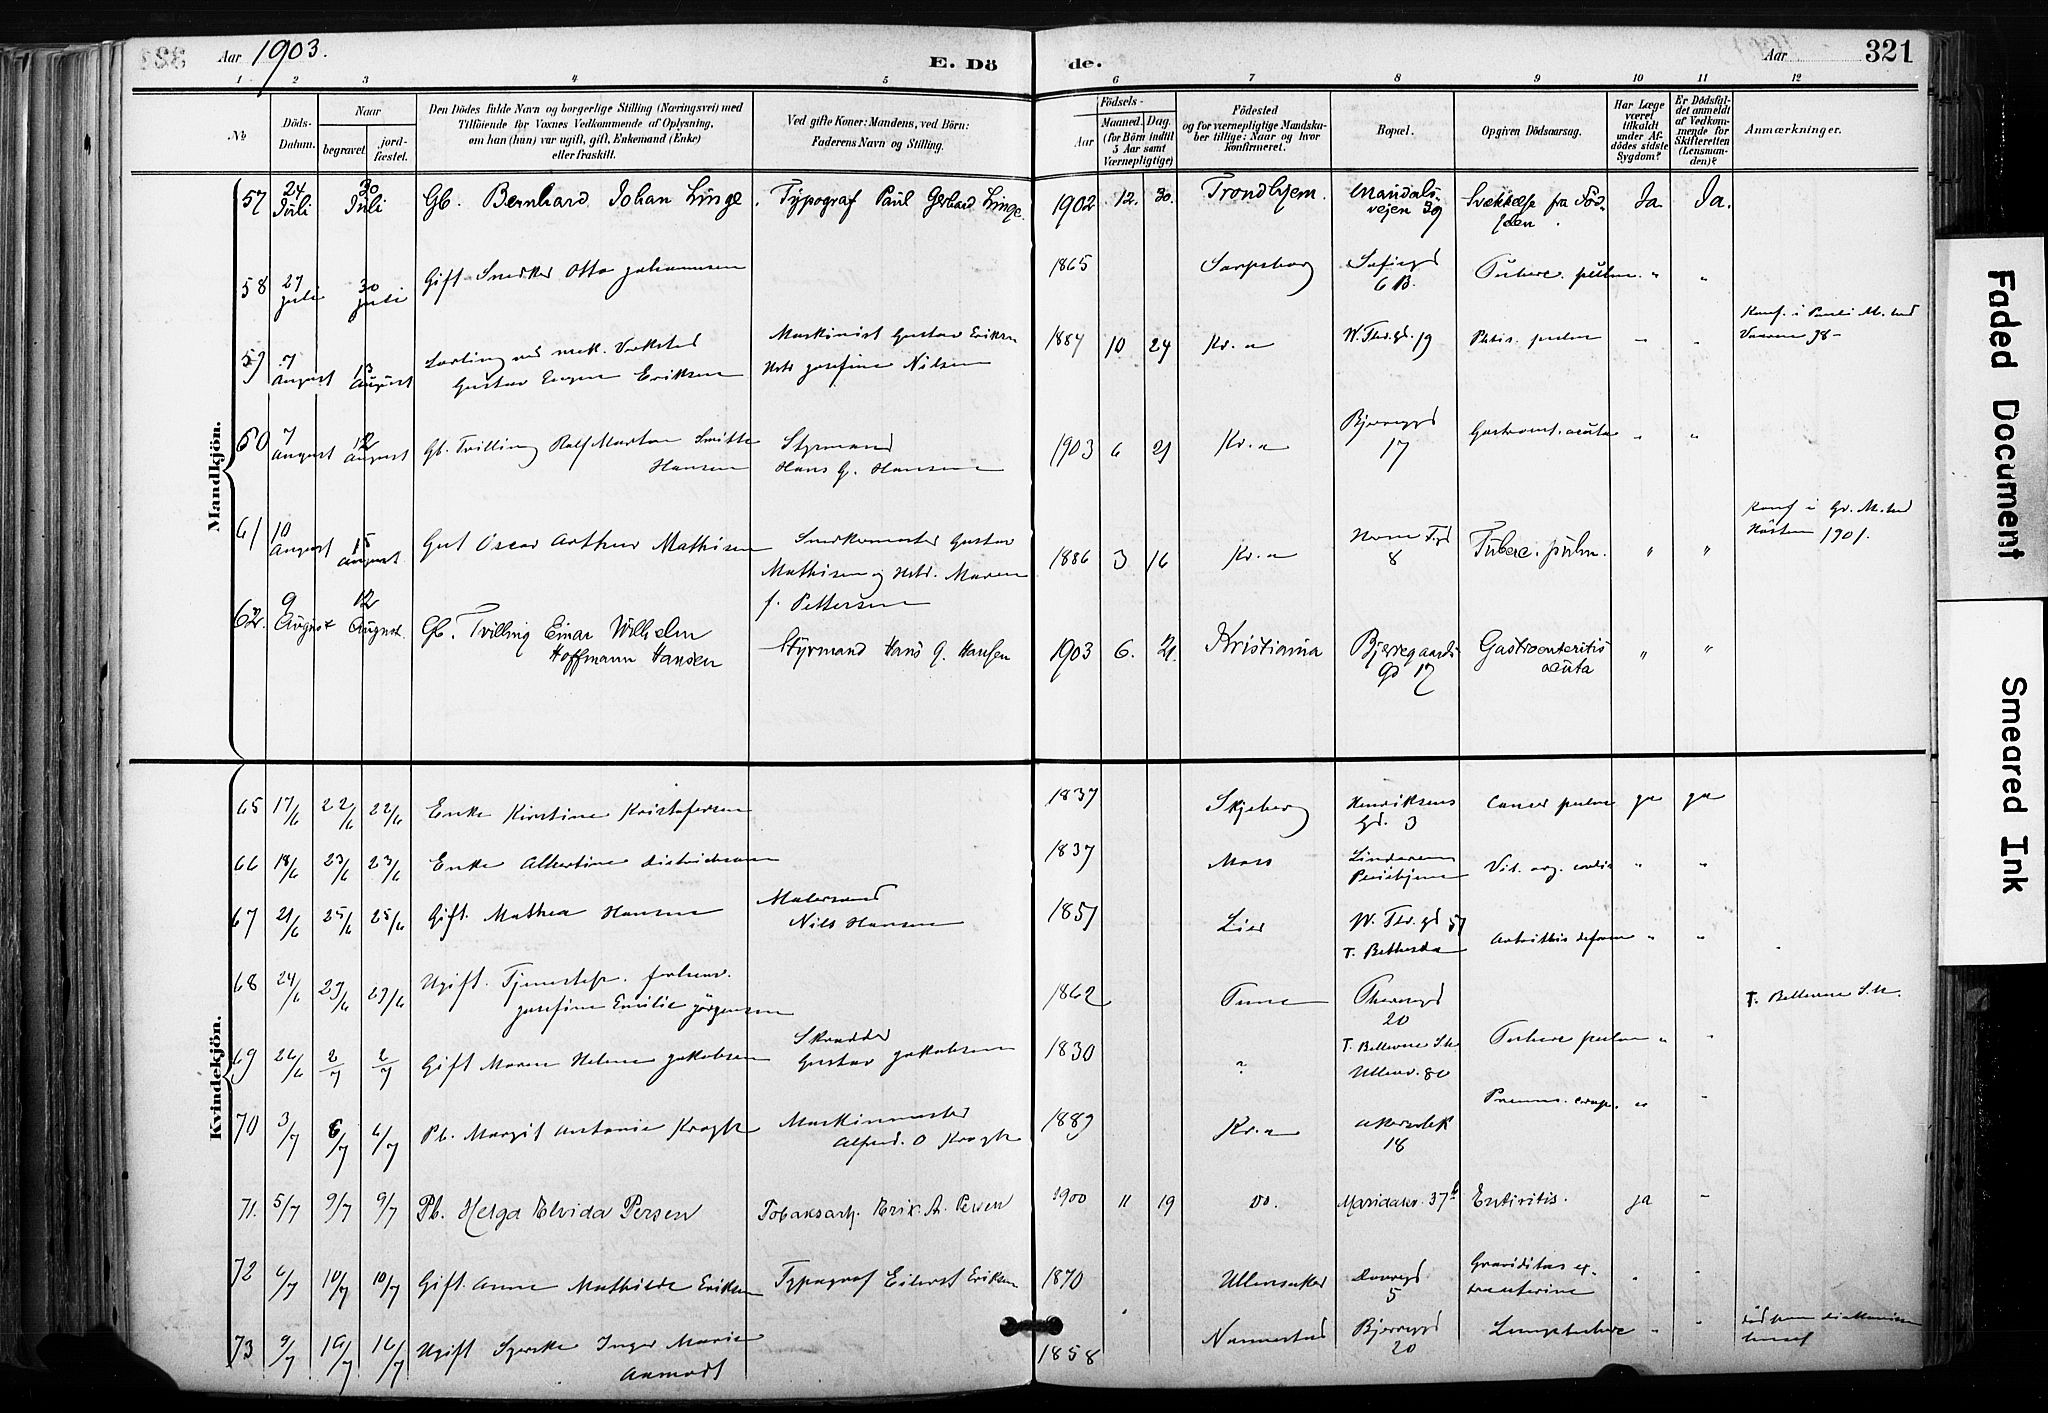 Aar 1903.
E. Dö de.
Aar
321
1 2 3 4 5 6 7 8 9 10 11 12
№
Döds-
Datum.
Naar
begravet.
jord-
fæstet.
Den Dödes fulde Navn og borgerlige Stilling (Næringsvei) med
Tilföiende for Voxnes Vedkommende af Oplysning,
om han (hun) var ugift, gift, Enkemand (Enke)
eller fraskilt.
Ved gifte Koner: Mandens, ved Börn:
Faderens Navn og Stilling.
Födsels-
Aar
Maaned. Dag.
(for Börn indtil
5 Aar samt
Værnepligtige)
Födested
og for værnepligtige Mandska-
ber tillige: Naar og hvor
konfirmeret.
Bopæl.
Opgiven Dödsaarsag.
Har Læge
været
tilkaldt
under Af-
dödes sidste
Sygdom?
Er Dödsfal-
det anmeldt
af Vedkom-
mende for
Skifteretten
(Lensman-
den)?
Anmærkninger.
Mandkjön.
57 24 Juli 30 Juli Gb. Bernhard Johan Linge. Typograf Paul Gerhard Linge. 1902 12. 30. Trondhjem. Mandals- Svækkelse fra Föd- Ja Ja.
vejen 39 selen.
58 27 juli 30 juli Gift Snedker Otto Johannesen 1865 Sarpsborg Sofiegd Tuberc. pulm. " "
6 B.
59 7 August 13 August Lærling ved mek. Verksted Maskinist Gustav Eriksen 1884 10 24 Kr.a W. Thr. gd. 19 Phtis. pulm " "
Gustav Eugen Eriksen Hstr Josefine Nilsen
60 7 August 12 August Gb. Tvilling Ralf Morton Smith Styrmand 1903 6 21 Kr.a Bjerregd Gastroent. acuta " "
Hansen Hans G. Hansen 17
61 10 August 15 August Gut Oscar Arthur Mathisen Snedkermester Gustav 1886 3 16 Kr.a 8 Tuberc. pulm. " " Konf. i Gr. M. ved
Mathisen og Hstr. Maren Hösten 1901.
f. Pettersen
62. 9 August 12 August. Gb. Tvilling Einar Wilhelm Styrmand Hans G. Hansen 1903 6. 21. Kristiania Bjerregaards Gastroenteritis " "
Hoffmann Hansen gd 17 acuta
Kvindekjön.
65 17/6 22/6 22/6 Enke Kirstine Kristofersen 1837 Skjeberg Henriksens Cancer pulm ja ja
gd. 3
66 18/6 23/6 23/6 Enke Albertine Didriksen 1837 Moss Vit. org. cordis " "
67 21/6 25/6 25/6 Gift. Mathea Hansen Malersvend 1851 Lier W. Thr. gd 57 Artrithis deform " "
Nils Hansen T. Bethesda
68 24/6 29/6 29/6 Ugift. Tjenestep. 1862 Tune Theresgd T. Bellevue S.H.
Josefine Emilie Jörgensen 20
69 26/6 2/7 2/7 Gift Maren Helene Jakobsen Skrædder 1830 ? T. Bellevue S.H. Tuberc pulm " "
Gustav Jakobsen Ullevv. 80
70 3/7 6/7 6/7 Pb. Margit Antonie Krogh Maskinmester 1889 Kr.a Akersbk Pneum. croup. " "
Alfred. O Krogh 18
71. 5/7 9/7 9/7 Pb. Helga Elvida Persen Tobaksarb. Erik A. Persen 1900 11 19 Do. Maridalsv. 37b Entiritis. ja "
72 6/7 10/7 10/7 Gift. Anne Mathilde Eriksen Typograf Eilerst Eriksen 1870 Ullensaker Dovregd Graviditas ex- " "
5 trauterine
73 9/7 16/7 16/7 Ugift Syerske Inger Marie 1858 Nannestad Bjerregd Lungetuberc " "
Aamodt 20
Faded Document
Smeared Ink